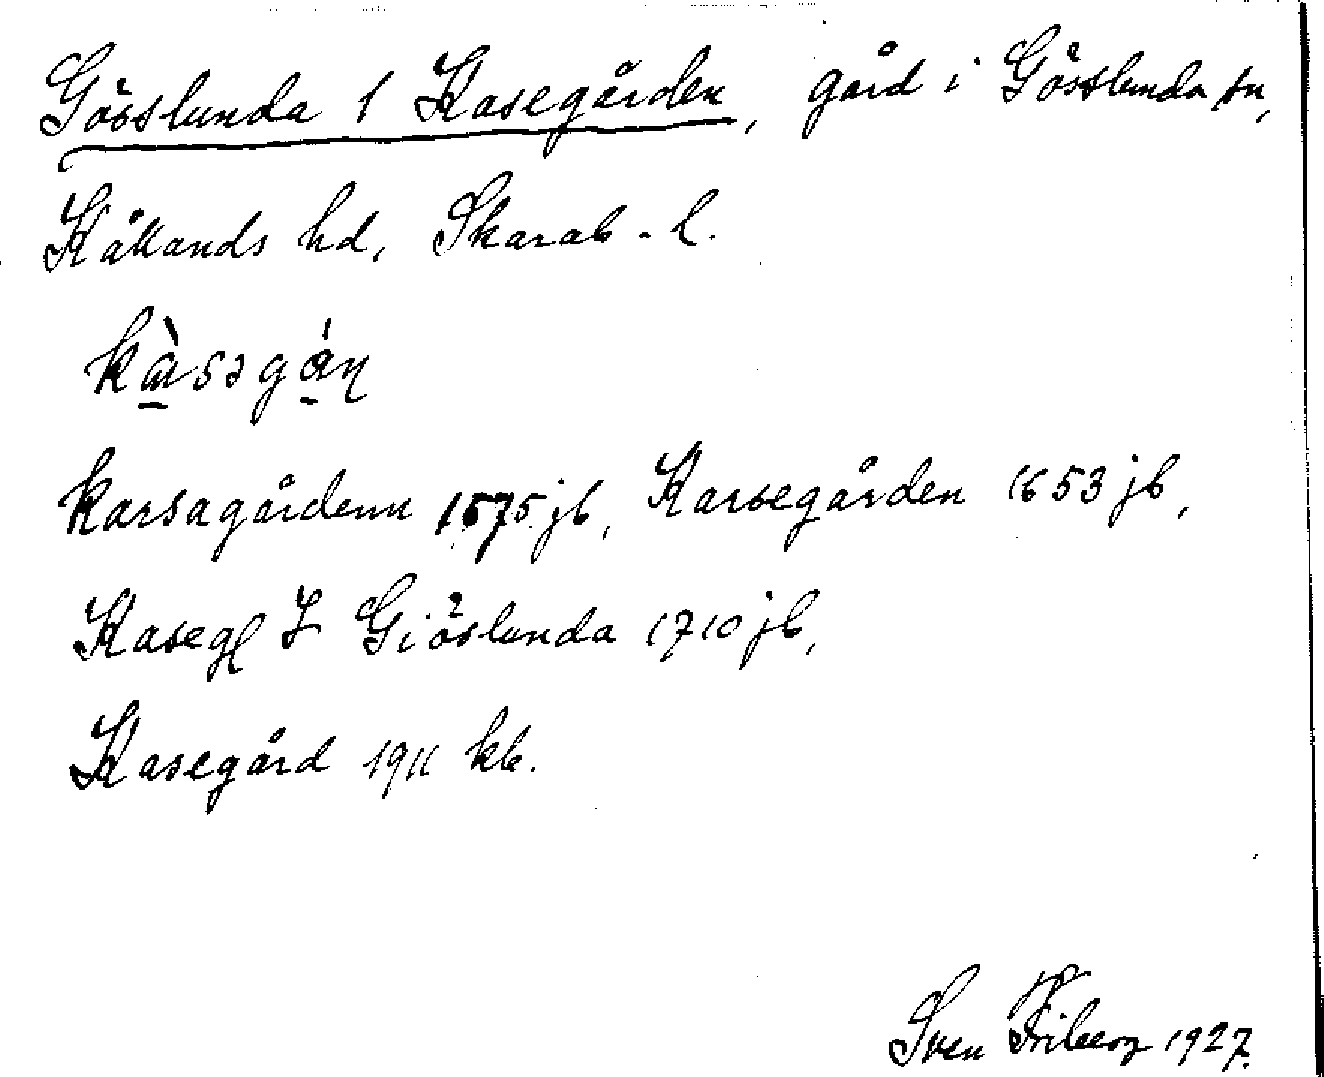 Gösslunda 1 Kasegården, gård i Gösslunda sn,
Kållands hd, Skarab. l.
kàsəgán
Karsagårdenn 1575 jb, Karsegården 1653 jb,
Kaseg I Giöslunda 1710 jb,
Kasegård 1911 kb.
Sven Friberg 1927.